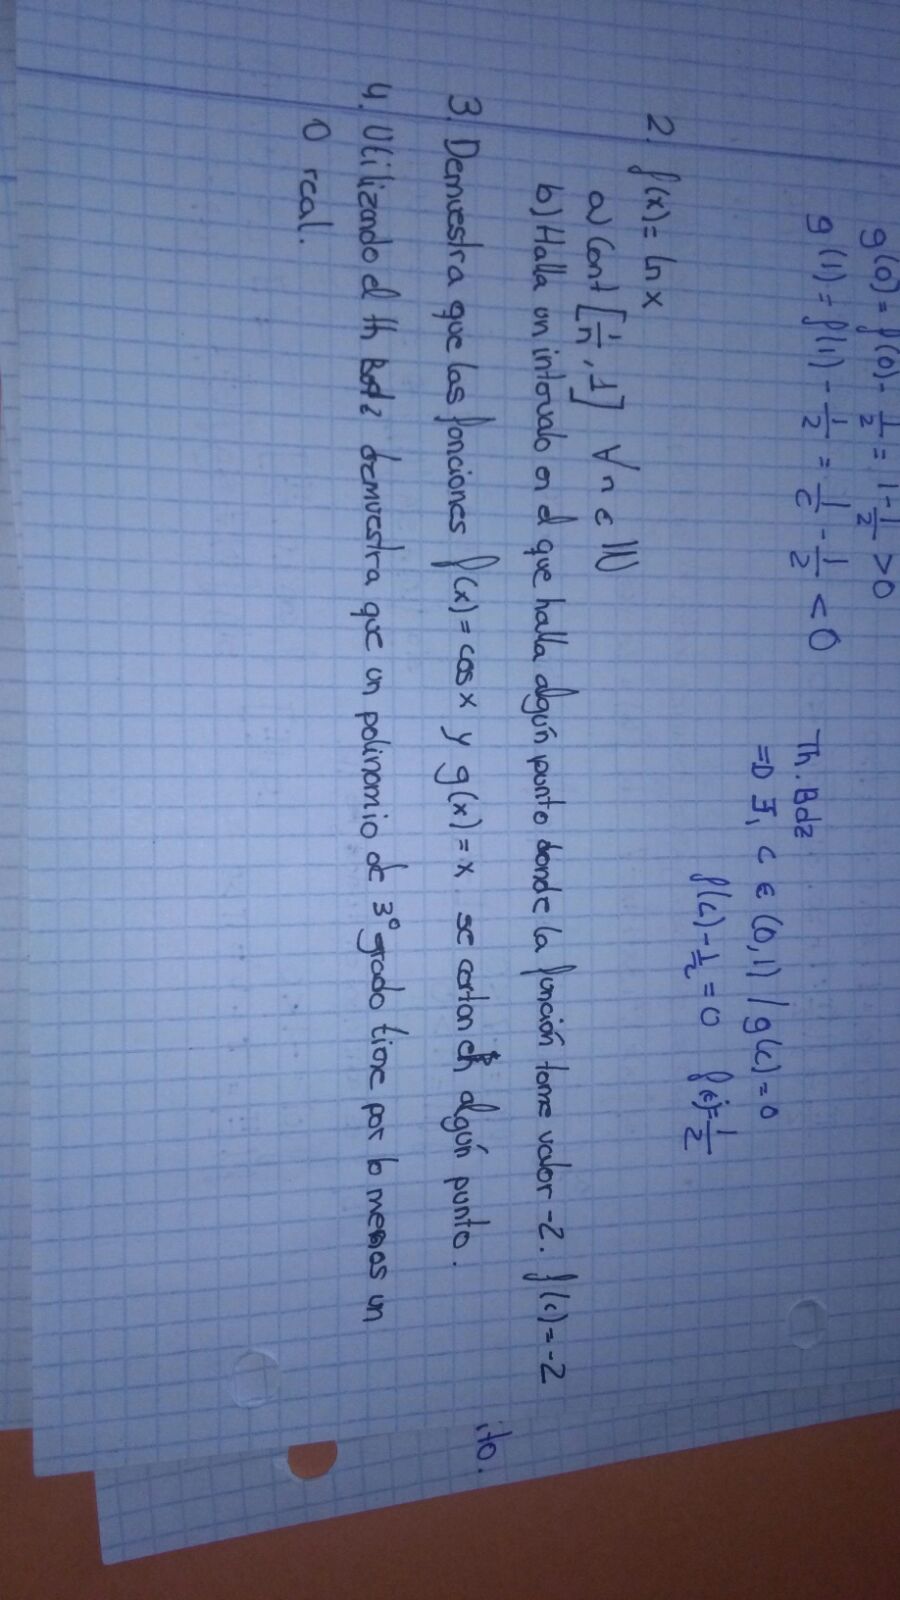 g(0) = f(0) - 1/2 = 1 - 1/2 > 0
g(1) = f(1) - 1/2 = 1/e - 1/2 < 0
Th. Bolz
=D ∃, c ∈ (0,1) / g(c) = 0
f(c) - 1/2 = 0 f(c) = 1/2
2. f(x) = ln x
a) Cont [1/n, 1] ∀ n ∈ ℕ
b) Halla un intervalo en el que halla algún punto donde la función tome valor -2. f(c) = -2
3. Demuestra que las funciones f(x) = cos x y g(x) = x se cortan en algún punto.
4. Utilizando el th Bolz demuestra que un polinomio de 3º grado tiene por lo menos un
0 real.
ito.